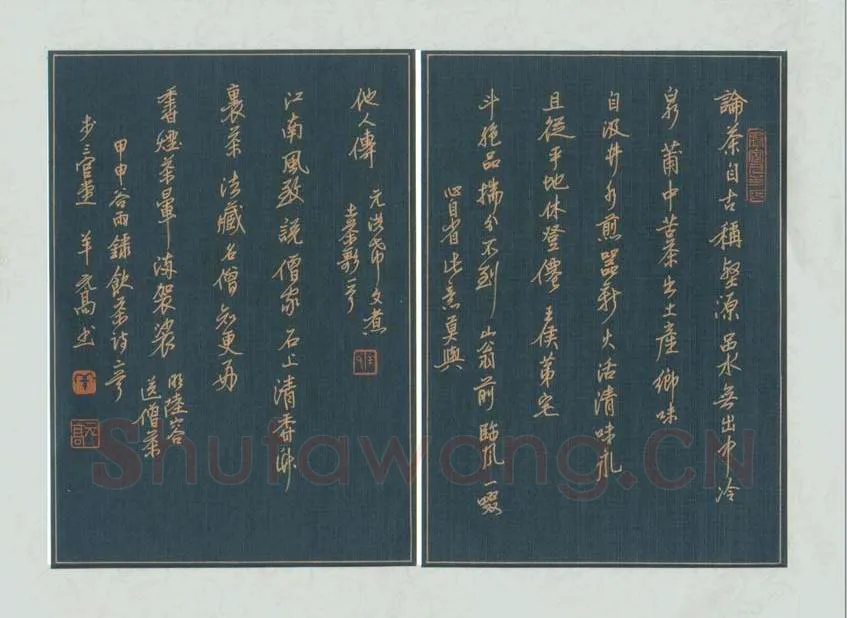 論茶自古稱壑源品水無出中泠
泉莆中苦茶出土產鄉味
自汲井水煎器新火活清味永
且從平地休登僊王侯第宅
斗絕品揣分不到山翁前臨風一啜
心自省此意莫與
他人傳 元洪希文煮
土茶歌
江南風致說僧家石上清香竹
裏茶法藏名僧知更好
香煙茶暈滿袈裟 明陸容
送僧茶
甲申谷雨錄飲茶詩二首
Shufawang.CN